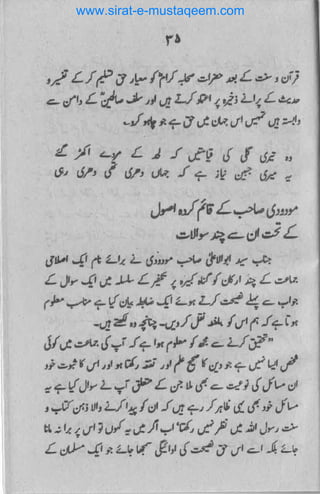 www.sirat-e-mustaqeem.com
۳۵
قرآن و سنت کے بعد حضرات صحابہ کرامؓ کو معیار حق تسلیم کر کے تفسیر و
حدیث کے پرانے ذخیرہ پر اعتماد کرتے ہیں اور سلف صالحینؒ کے دامن سے
وابستہ ہیں تمہیں اس جہان میں حق ہے جو چاہو کرو۔
وہ تیری گلی کی قیامتیں کہ لحد کے مردے اکھڑ گئے
یہ میری جبین نیاز ہے کہ جہاں دھری تھی دھری رہی
مودودی صاحب کے قائم کردہ اصول
کے تحت ان سے چند سوالات
جناب سید ابو الاعلیٰ صاحب مودودی نے برائے نام ایک اصلاحی
جماعت کے چند ارکان کو گناہ کبیرہ پر تکفیر کے سلسلہ میں ایک سوال کے
جواب سے پہلے نصیحت کرتے ہوئے ایک ضابطہ بیان کیا ہے مناسب معلوم
ہوتا ہے کہ ہم اس کو بلفظہ نقل کر دیں۔ چنانچہ وہ لکھتے ہیں۔
"تحقیق کرنے سے مجھ کو معلوم ہوا ہے کہ آپ کی جماعت میں کوئی
شخص ایسا نہیں ہے جو دین کا صحیح علم اور تفقہ رکھتا ہو اور اس کا ثبوت خود
ان مسائل کی نوعیت سے بھی ملا جن کے متعلق آپ نے سوال کیا ہے یہ
مسائل خود بھی یہی ظاہر کر رہے ہیں کہ ان کو پیدا کرنے والا ذہن کتاب و
سنت رسول اللہ میں نظر نہیں رکھتا، اب اگر میں یہ کہوں تو اس پر برا نہ مانا
جائے بلکہ اسے اس حق نصیحت کی ادائیگی سمجھا جائے جو ایک مسلمان کے